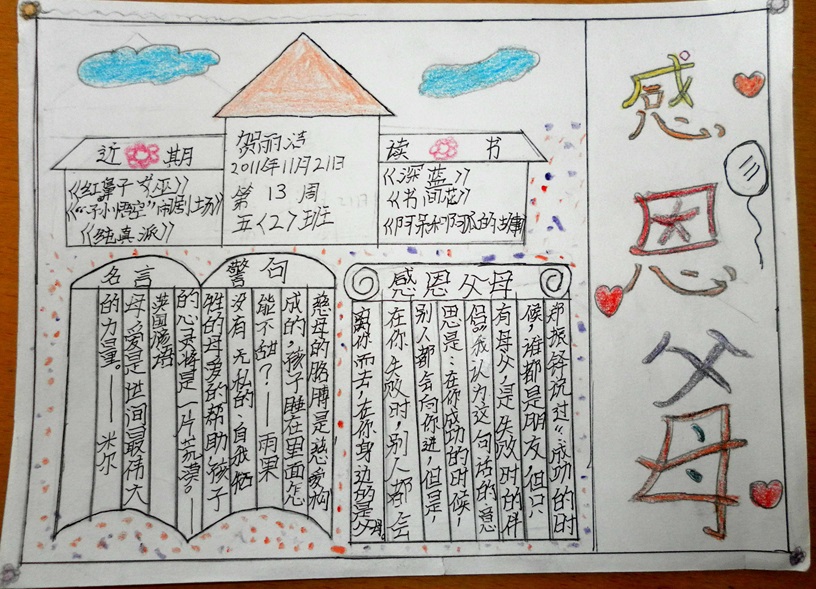 感恩父母
近期
《红辈子 女巫》
《“孙小悟空”闹剧土场》
《纯真派》
贺雨洁
2011年11月21日
第 13 周
五〈2〉班
读书
《深蓝》
《书间花》
名言警句
慈母的胳膊是慈爱构
成的,孩子睡在里面怎
能不甜?——雨果
没有无私的、自我牺
牲的母爱的帮助,孩子
的心灵将是一片荒漠。——
英国
母爱是世间最伟大
的力量。——米尔
感恩父母
郑振铎说过:“成功的时
候,谁都是朋友,但只
有母父,是失败时的伴
侣”我认为这句话的意
思是:在你成功的时候,
别人都会向你进,但是,
在你失败时,别人都会
离你而去,在你身边的是父母。